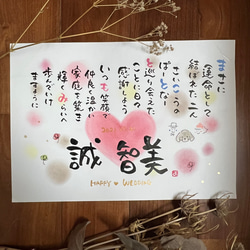 まさに
運命として
結ばれた二人
さいこうの
ぱーとなー
と巡り会えた
ことに日々
感謝しよう
いつも笑顔で
仲良く温かい
家庭を築き
輝くみらいへ
歩んでいけ
ますように
誠 智美
HAPPY WEDDING